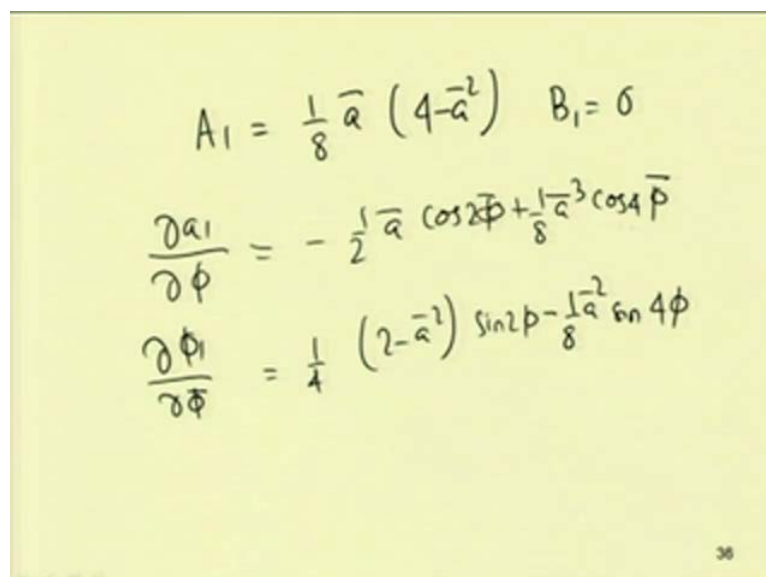 A₁ = 1/8 ā (4-ā²) B₁ = 0
∂a₁/∂ϕ = - 1/2 ā cos2ϕ̄ + 1/8 ā³ cos4ϕ̄
∂ϕ₁/∂ϕ̄ = 1/4 (2-ā²) sin2ϕ - 1/8 ā² sin 4ϕ
36